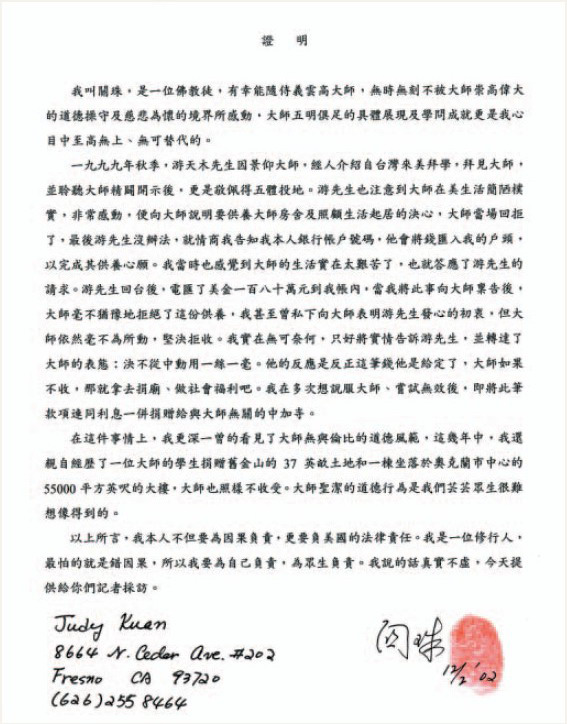 證 明
我叫關珠，是一位佛教徒，有幸能隨侍義雲高大師，無時無刻不被大師崇高偉大
的道德操守及慈悲為懷的境界所感動，大師五明俱足的具體展現及學問成就更是我心
目中至高無上、無可替代的。
一九九九年秋季，游天木先生因景仰大師，經人介紹自台灣來美拜學，拜見大師，
並聆聽大師精闢開示後，更是敬佩得五體投地。游先生也注意到大師在美生活簡陋樸
實，非常感動，便向大師說明要供養大師房舍及照顧生活起居的決心，大師當場回拒
了，最後游先生沒辦法，就情商我告知我本人銀行帳戶號碼，他會將錢匯入我的戶頭，
以完成其供養心願。我當時也感覺到大師的生活實在太艱苦了，也就答應了游先生的
請求。游先生回台後，電匯了美金一百八十萬元到我帳內，當我將此事向大師稟告後，
大師毫不猶豫地拒絕了這份供養，我甚至曾私下向大師表明游先生發心的初衷，但大
師依然毫不為所動，堅決拒收。我實在無可奈何，只好將實情告訴游先生，並轉達了
大師的表態：決不從中動用一絲一毫。他的反應是反正這筆錢他是給定了，大師如果
不收，那就拿去捐廟、做社會福利吧。我在多次想說服大師、嘗試無效後，即將此筆
款項連同利息一併捐贈給與大師無關的中加寺。
在這件事情上，我更深一曾的看見了大師無與倫比的道德風範，這幾年中，我還
親自經歷了一位大師的學生捐贈舊金山的 37 英畝土地和一棟坐落於奧克蘭市中心的
55000 平方英呎的大樓，大師也照樣不收受。大師聖潔的道德行為是我們芸芸眾生很難
想像得到的。
以上所言，我本人不但要為因果負責，更要負美國的法律責任。我是一位修行人，
最怕的就是錯因果，所以我要為自己負責，為眾生負責。我說的話真實不虛，今天提
供給你們記者採訪。
Judy Kuan
8664 N. Cedar Ave. #202
Fresno CA 93720
(626)255 8464
関珠
12/2 '02